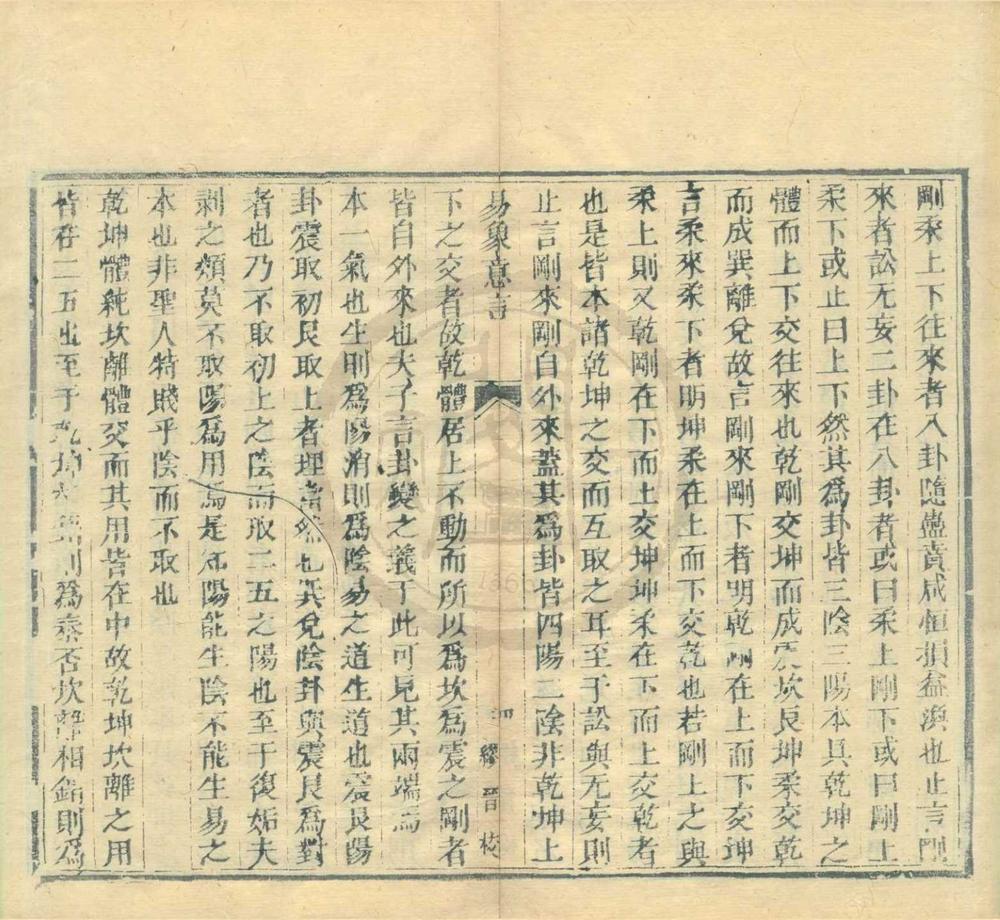 剛柔上下往來者八卦隨蠱賁咸恒損益渙也止言剛
來者訟无妄二卦在八卦者或曰柔上剛下或曰剛上
柔下或止曰上下然其為卦皆三陰三陽本具乾坤之
體而上下交往來也乾剛交坤而成震坎艮坤柔交乾
而成巽離兌故言剛來剛下者明乾剛在上而下交坤
言柔來柔下者明坤柔在上而下交乾也若剛上之與
柔上則又乾剛在下而上交坤坤柔在下而上交乾者
也是皆本諸乾坤之交而互取之耳至于訟與无妄則
止言剛來剛自外來蓋其為卦皆四陽二陰非乾坤上
易象意言
四
繆晉校
下之交者故乾體居上不動而所以為坎為震之剛者
皆自外來也夫子言卦變之義于此可見其兩端焉
本一氣也生則為陽消則為陰易之道生道也震艮陽
卦震取初艮取上者理當然也巽兌陰卦與震艮為對
者也乃不取初上之陰而取二五之陽也至于復姤夬
剥之類莫不取陽為用焉是知陽能生陰不能生易之
本也非聖人特賤乎陰而不取也
乾坤體純坎離體交而其用皆在中故乾坤坎離之用
皆存二五出至于乾坤相錯則為泰否坎離相錯則為